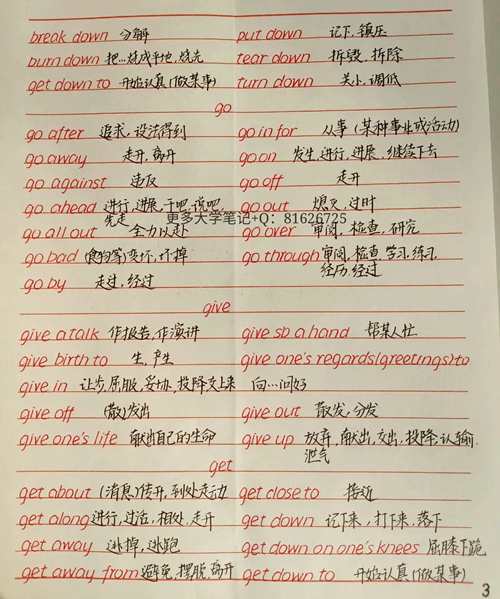 break down 分解 put down 记下,镇压
burn down 把…烧成平地,烧光 tear down 拆毁,拆除
get down to 开始认真(做某事) turn down 关小,调低
go
go after 追求,设法得到 go in for 从事(某种事业或活动)
go away 走开,离开 go on 发生,进行,进展,继续下去
go against 违反 go off 走开
go ahead 进行,进展,干吧,说吧,先走 go out 熄灭,过时
更多大学笔记+Q:81626725
go all out 全力以赴 go over 审阅,检查,研究
go bad (食物等)变坏,坏掉 go through 审阅,检查,学习,练习
go by 走过,经过 经历,经过
give
give a talk 作报告,作演讲 give sb a hand 帮某人忙
give birth to 生,产生 give one's regards(greetings) to
give in 让步,屈服,妥协,投降,交上来 向…问好
give off (散)发出 give out 散发,分发
give one's life 献出自己的生命 give up 放弃,献出,交出,投降,认输,
泄气
get
get about (消息)传开,到处走动 get close to 接近
get along 进行,过活,相处,走开 get down 记下来,打下来,落下
get away 逃掉,逃跑 get down on one's knees 屈膝下跪
get away from 避免,摆脱,离开 get down to 开始认真(做某事)
3